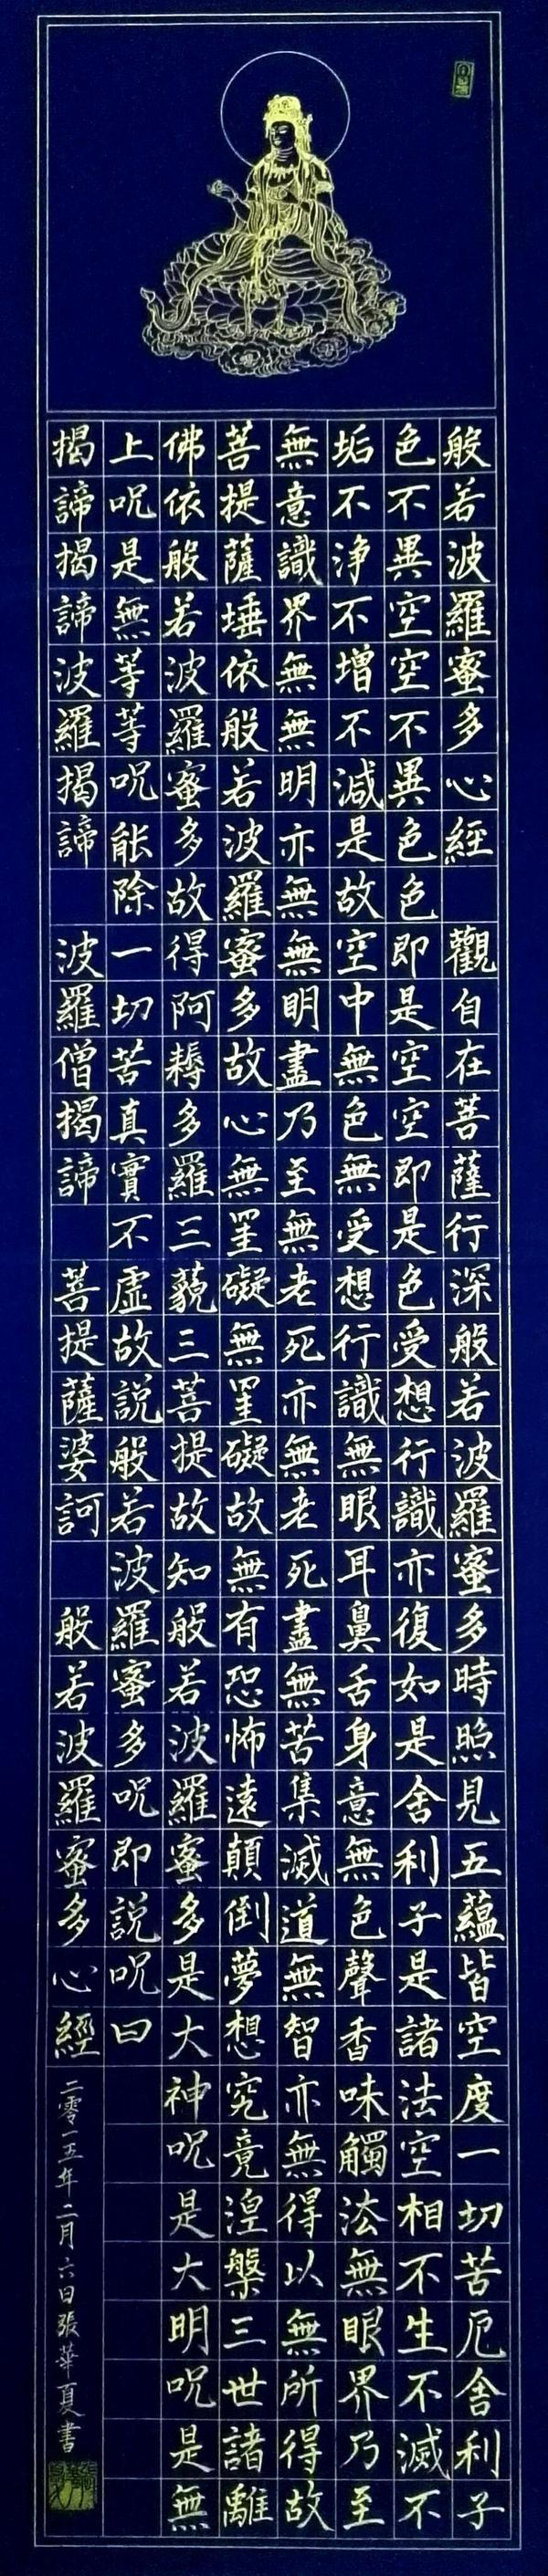 般若波羅蜜多心經 觀自在菩薩行深般若波羅蜜多時照見五蘊皆空度一切苦厄舍利子
色不異空空不異色色即是空空即是色受想行識亦復如是舍利子是諸法空相不生不滅不
垢不淨不增不減是故空中無色無受想行識無眼耳鼻舌身意無色聲香味觸法無眼界乃至
無意識界無無明亦無無明盡乃至無老死亦無老死盡無苦集滅道無智亦無得以無所得故
菩提薩埵依般若波羅蜜多故心無罣礙無罣礙故無有恐怖遠顛倒夢想究竟湼槃三世諸離
佛依般若波羅蜜多故得阿耨多羅三藐三菩提故知般若波羅蜜多是大神呪是大明呪是無
上呪是無等等呪能除一切苦真實不虛故說般若波羅蜜多呪即說呪曰
揭諦揭諦波羅揭諦 波羅僧揭諦 菩提薩婆訶 般若波羅蜜多心經
二零一五年二月六日張華夏書